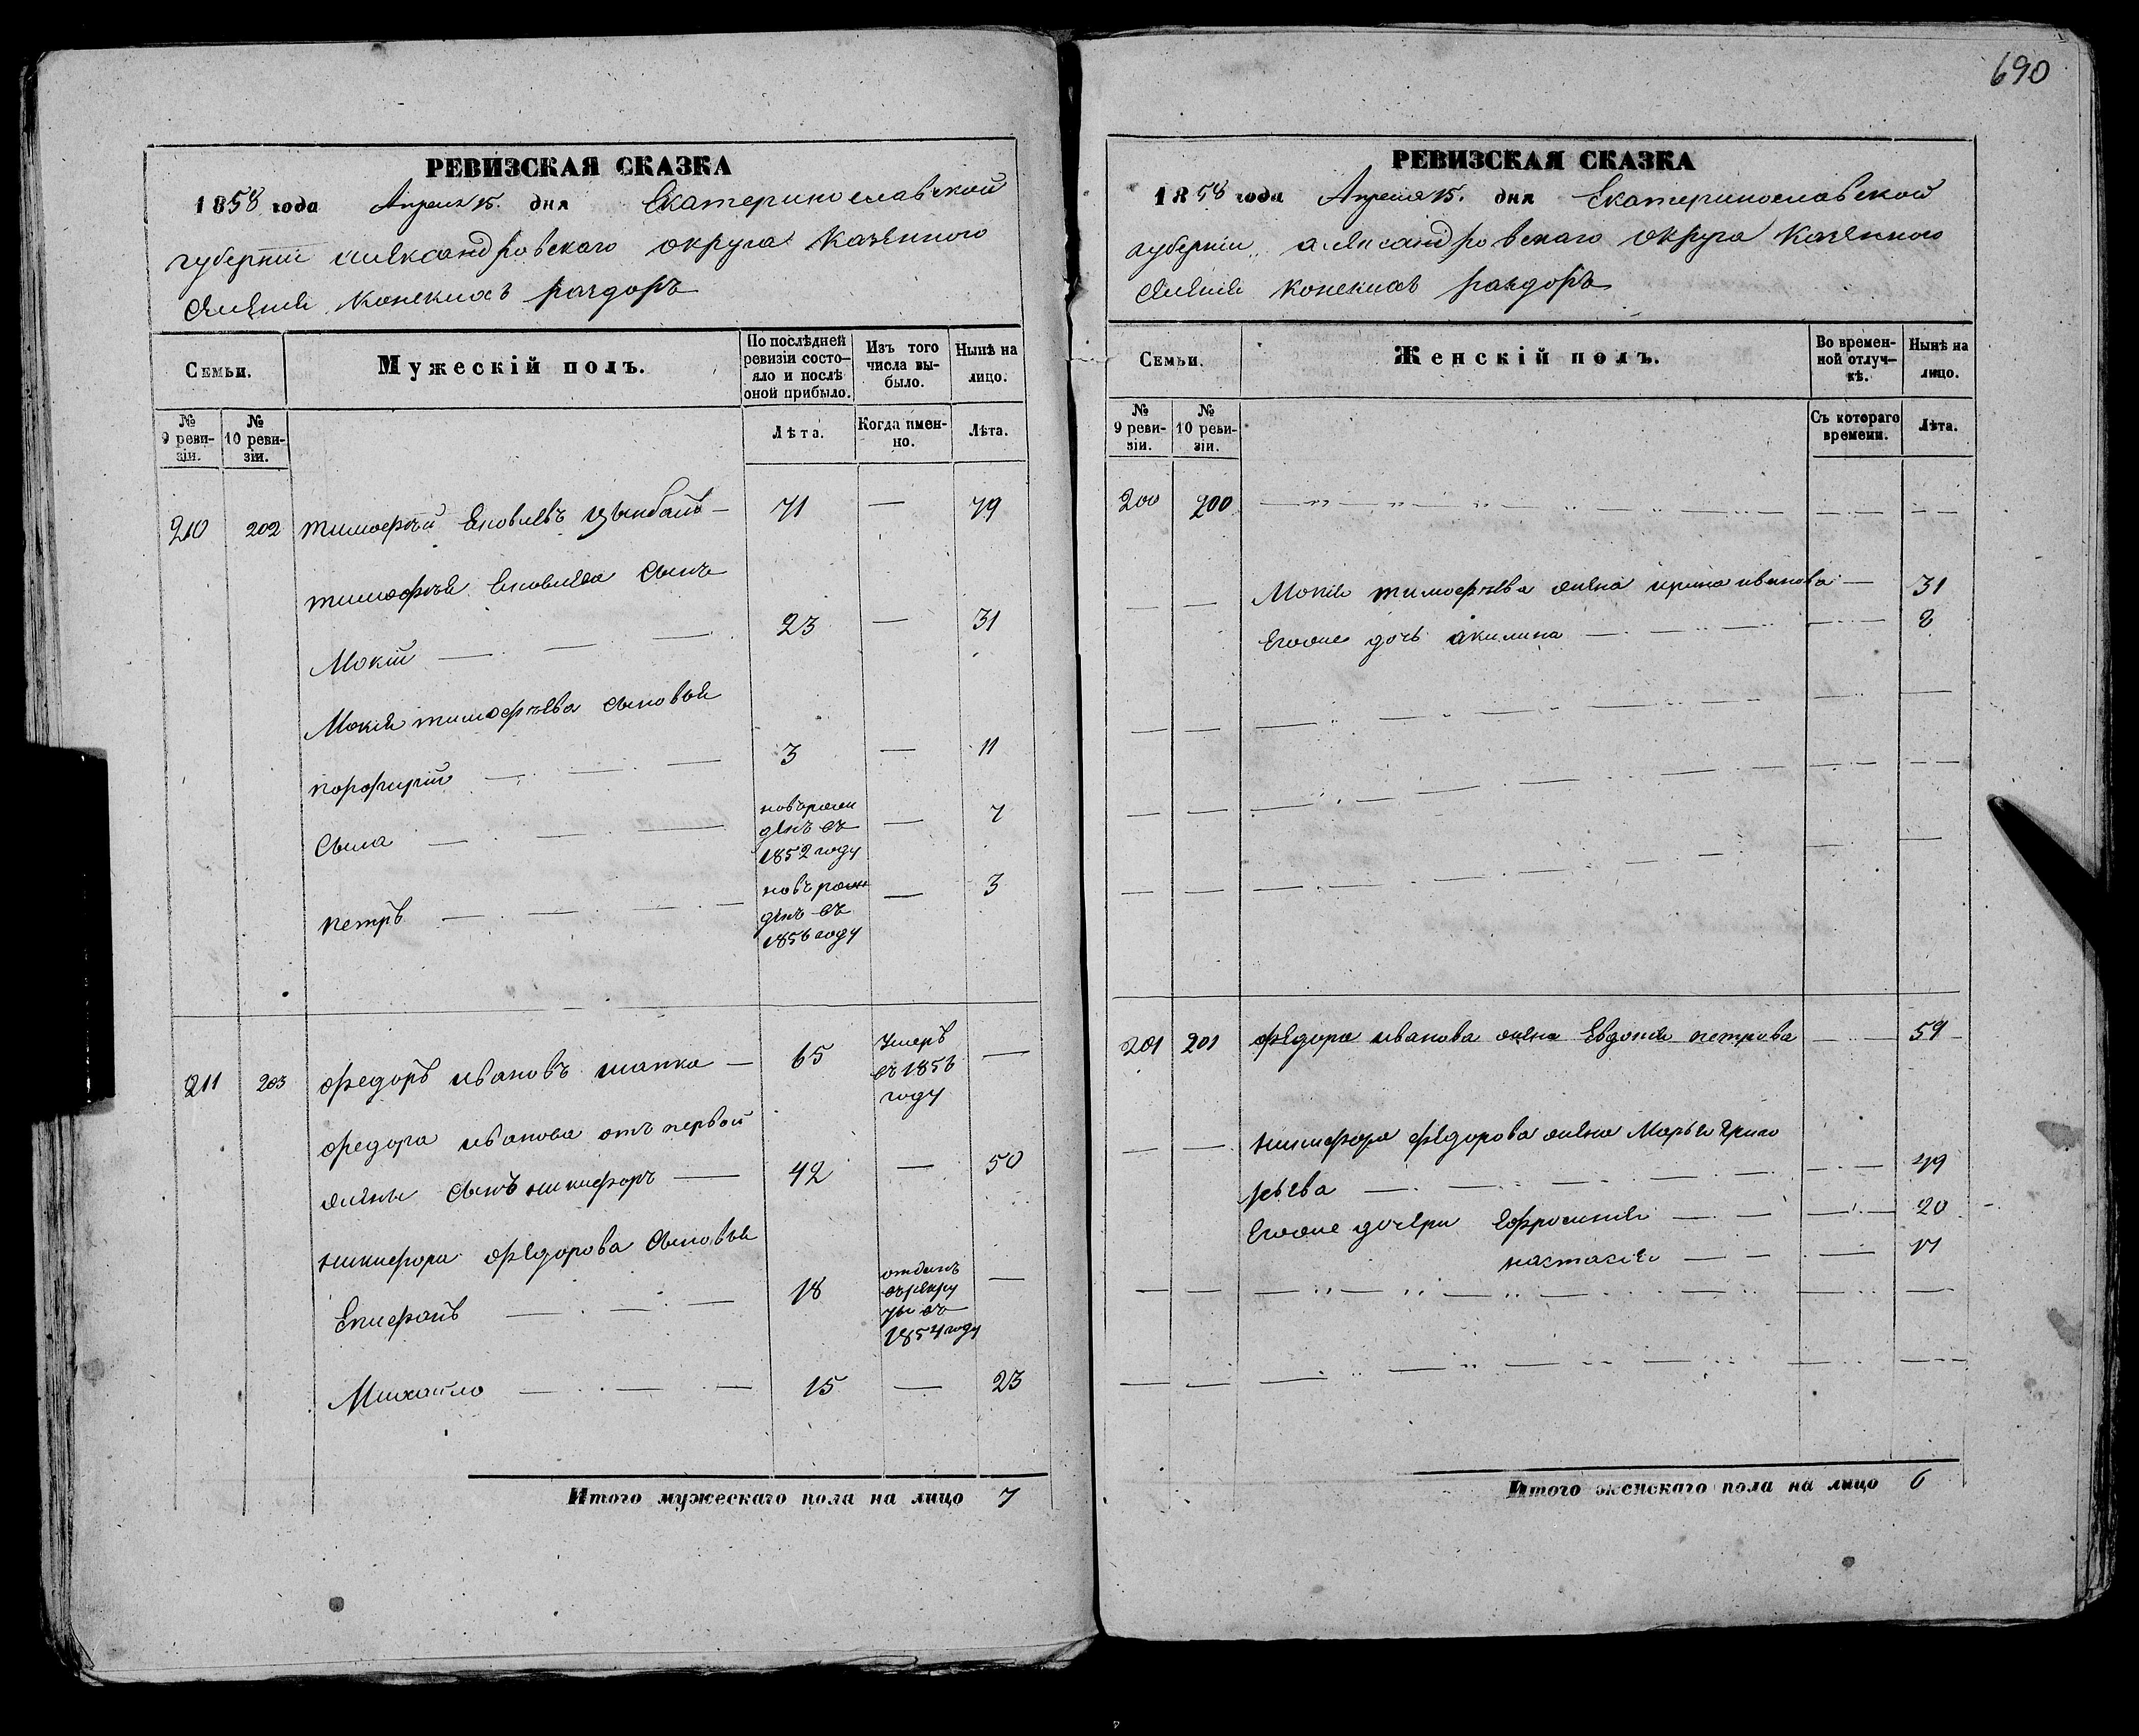 РЕВИЗСКАЯ СКАЗКА
1858 года Апреля 15. дня Екатеринославской
губернiи александровскаго округа казенного
селенiя конскихъ раздоръ
Семьи.
Мужескiй полъ.
По послѣдней ревизiи состояло и послѣ оной прибыло.
Изъ того числа выбыло.
Нынѣ на лицо.
№ 9 ревизiи.
№ 10 ревизiи.
Лѣта.
Когда именно.
Лѣта.
210 202 тимофѣй Яковлевъ цымбалъ — 71 — 79
тимофѣя Яковлева сынъ
Мокiй — 23 — 31
Мокiя тимофѣева сыновья
порфирiй — 3 — 11
Сыла — новърожденъ въ 1852 году — 7
петръ — новърожденъ въ 1856 году — 3
211 203 федоръ ивановъ шапка — 65 Умеръ въ 1856 году —
федора иванова отъ первой
жены сынъ никифоръ — 42 — 50
никифора федорова сыновья
Епифанъ — 18 отданъ въ рекруты въ 1854 году —
Михайло — 15 — 23
Итого мужескаго пола на лицо 7
690
РЕВИЗСКАЯ СКАЗКА
1858 года Апреля 15. дня Екатеринославской
губернiи александровскаго округа казенного
селенiя конскихъ раздоръ
Семьи.
Женскiй полъ.
Во временной отлучкѣ.
Нынѣ на лицо.
№ 9 ревизiи.
№ 10 ревизiи.
Съ котораго времени.
Лѣта.
200 200
Мокiя тимофѣева жена ирина иванова — 31
Егоже дочь акилина — 8
201 201 федора иванова жена Евдокiя петрова — 59
никифора федорова жена Марья Григо
рьева — 49
Егоже дочери Ефросинiя — 20
настасiя — 17
Итого женскаго пола на лицо 6